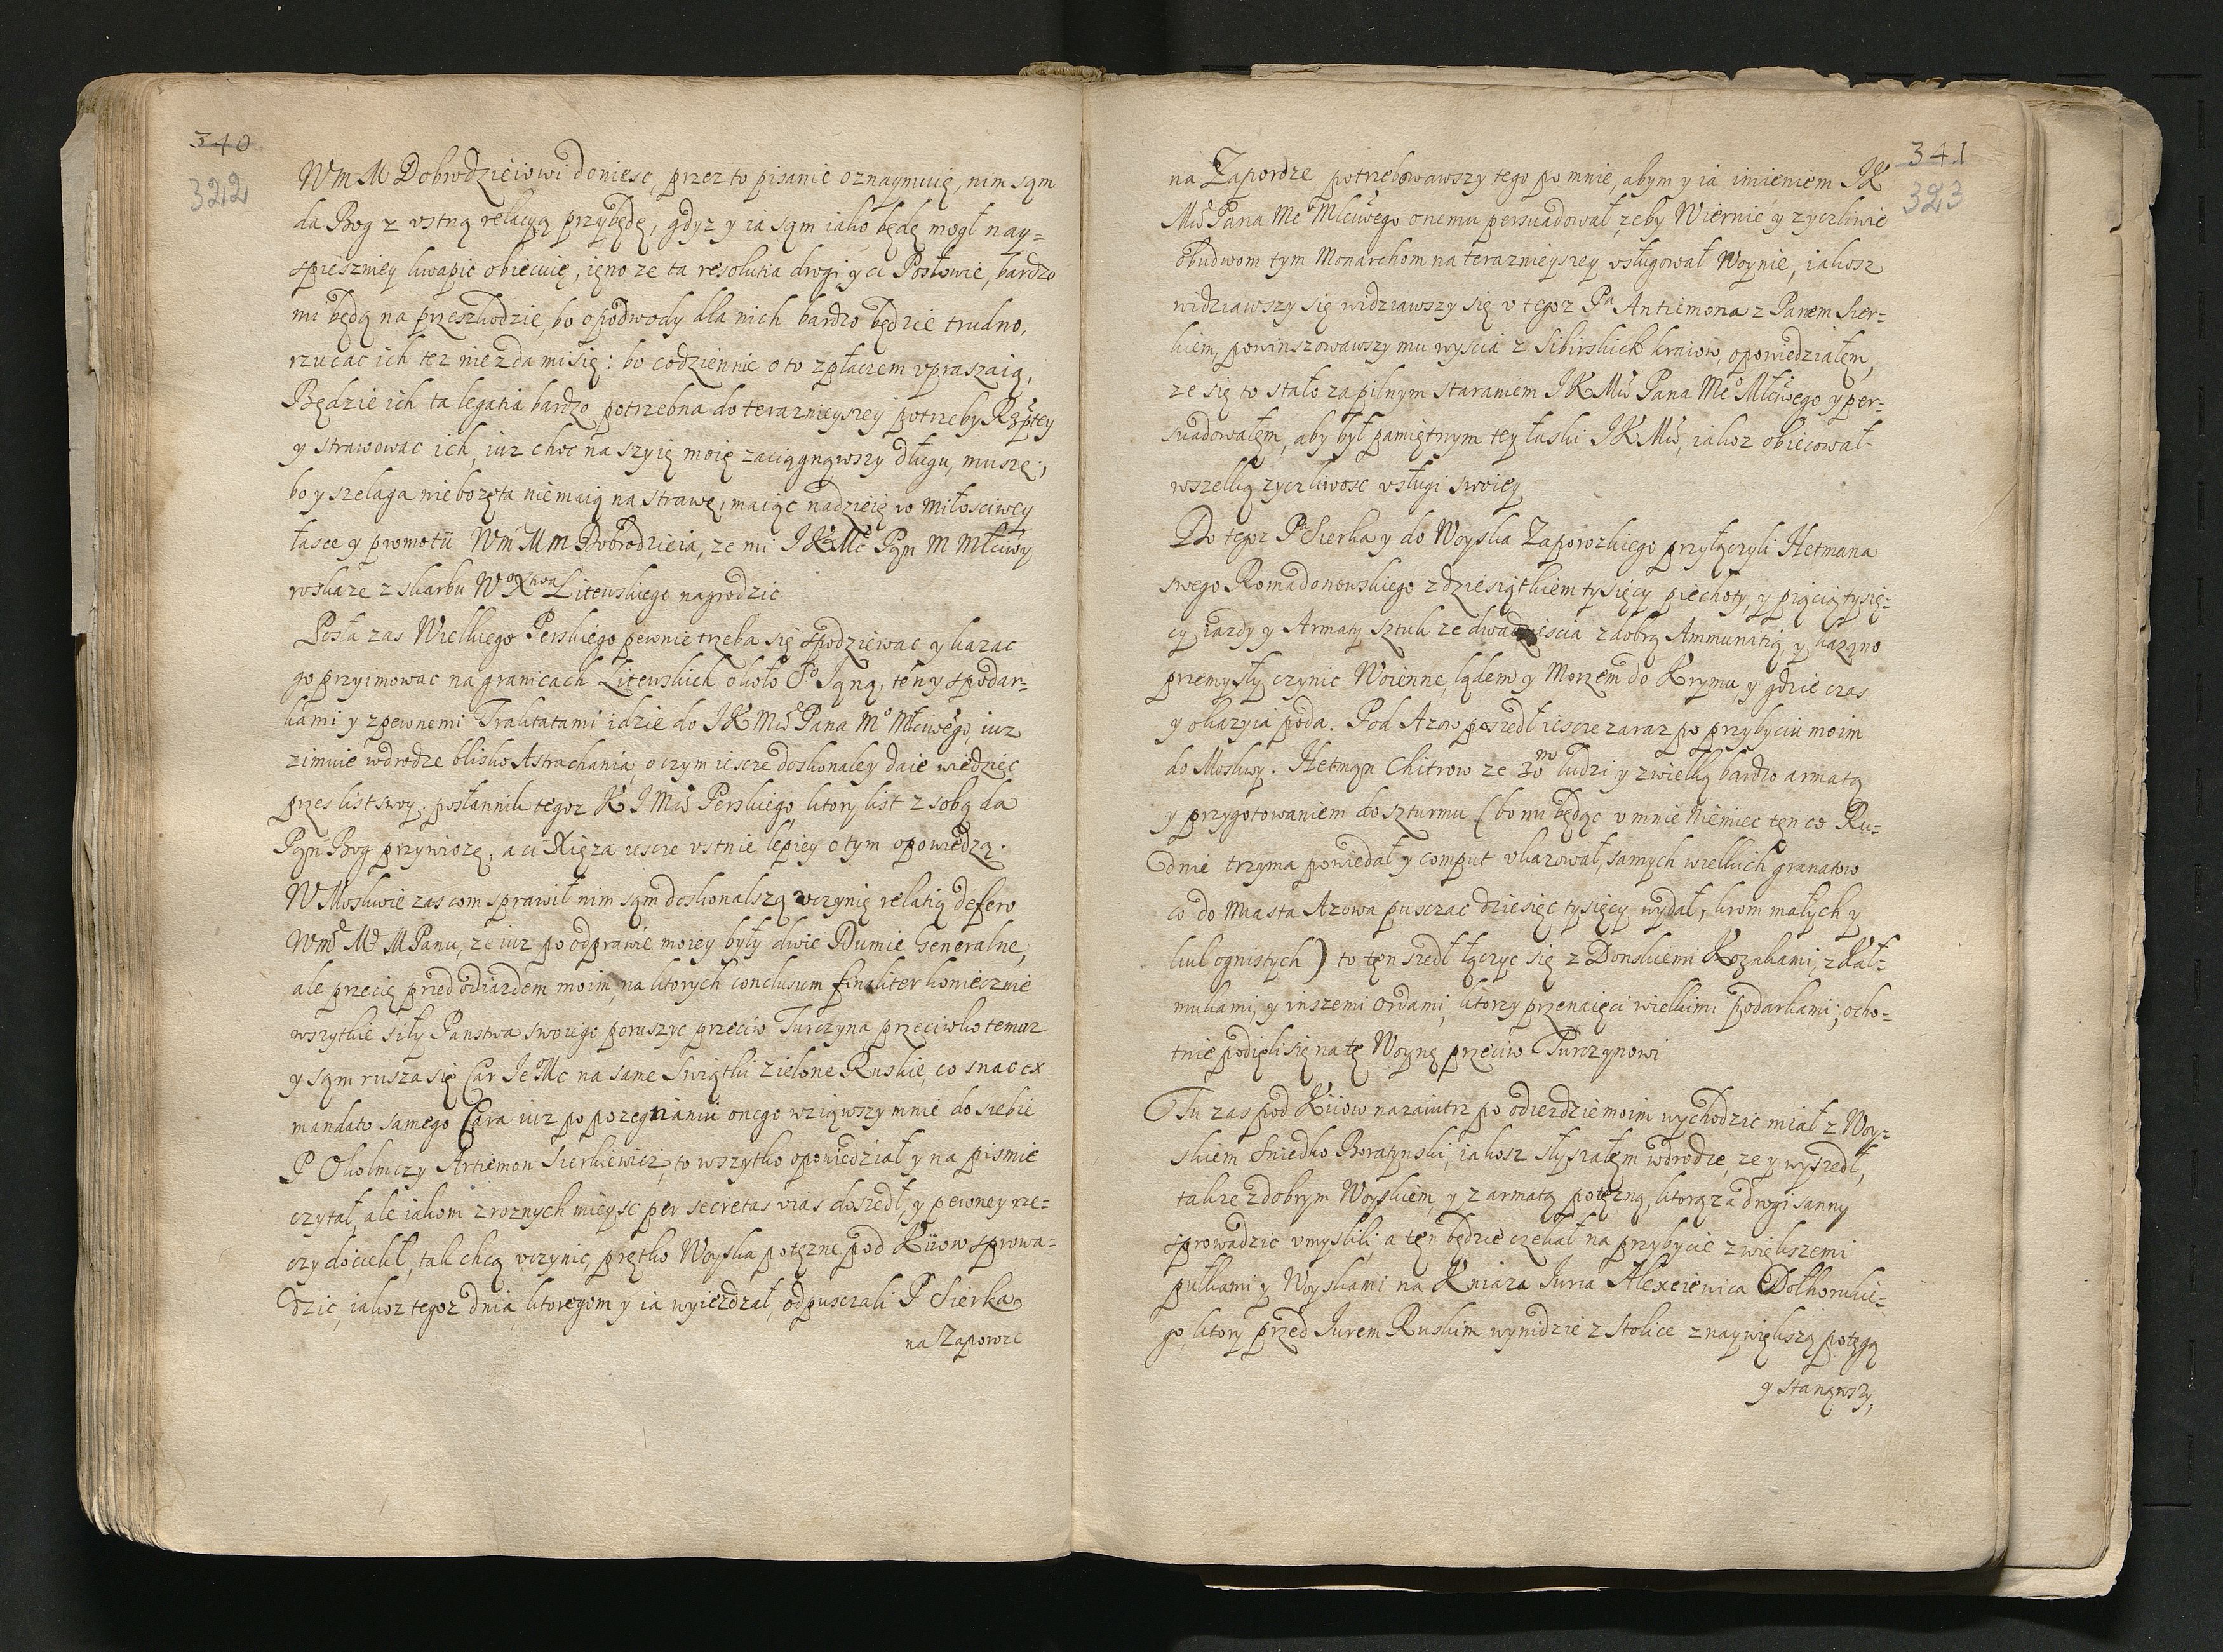 340
322
WmM Dobrodzieiowi doniesc, przez to pisanie oznaymuię, nim sąm
da Bog z vstną relacyą przybędę, gdyz y ia sąm iako będę mogł nay=
spieszniey kwapic obiecuię, ięno ze ta resolutia drogi y ci Posłowie, bardzo
mi będą na przeszkodzie, bo o podwody dla nich bardzo będzie trudno,
rzucac ich tez niezda mi się: bo codziennie o to zpłaczem vpraszaią,
Będzie ich ta legatia bardzo potrzebna do teraznieyszey potrzeby Rzptey
y strawowac ich, iuz choc na szyię moię zaciągnąwszy długu, muszę,
bo y szelaga niebozęta niemaią na strawę, maiąc nadzieię w miłosciwey
łasce y promotii WmMm Dobrodzieia, ze mi JKMc Pąn M Młciwy
wskaze z skarbu WoXtwa Litewskiego nagrodzic
Posła zas Wielkiego Perskiego pewnie trzeba się spodziewac y kazac
go przyimowac na granicach Litewskich około So Jąna, ten y spodar=
kami y zpewnemi Traktatami idzie do JKMci Pana Mo Młciwego, iuz
zimuie wdrodze blisko Astrachania, o czym iescze doskonaley daie wiedziec
przes list swoy posłannik tegoz KJMci Perskiego, ktory list z sobą da
Pąn Bog przywiozę, a ci Xięza iescze vstnie lepiey o tym opowiedzą.
W Moskwie zas com sprawił nim sąm doskonalszą vczynię relatią defero
Wmc Me MPanu, ze iuz po odprawie moiey były dwie Dumie Generalne,
ale przecię przed odiazdem moim, na ktorych conclusum finaliter koniecznie
wszytkie siły Panstwa swoiego poruszyc przeciw Turczyna przeciwko temuz
y sąm rusza się Car JeMc na same Swiątki zielone Ruskie, co snac ex
mandato samego Cara iuz po pozegnaniu onego wziąwszy mnie do siebie
P Okolniczy Artiemon Sierkiewicz, to wszytko opowiedział y na pismie
czytał, ale iakom z roznych mieysc per secretas vias doszedł, y pewney rze=
czy dociekł, tak chcą vczynic, prętko Woyska potęzne pod Kiiow sprowa=
dzic, iakoz tegoz dnia, ktoregom y ia wyiezdzał, odpusczali P Sierka
na Zaporoze
341
323
na Zaporoze potrzebowawszy tego po mnie, abym y ia imieniem JK
Mci Pana Meo Młciwego onemu persuadował, zeby Wiernie y zyczliwie
obudwom tym Monarchom na teraznieyszey vsługował Woynie, iakosz
widziawszy się widziawszy się v tegoz Pa Antiemona z Panem Sier=
kiem, powinszowawszy mu wyscia z Sibirskich kraiow, opowiedziałem,
ze się to stało za pilnym staraniem JKMci Pana Meo Młciwego y per=
suadowałem, aby był pamiętnym tey łaski JKMci, iakoz obiecował
wszelką zyczliwosc vsługi swoiey
Do tegoz Pa Sierka y do Woyska Zaporozkiego przyłączyli Hetmana
swego Romadonowskiego z dziesiątkiem tysięcy piechoty, y pięcią tysię=
cy iazdy y Armaty sztuk ze dwadziescia z dobrą Ammunitią y kazano
przemysły czynic Woienne, lądem y Morzem do Krymu, y gdzie czas
y okazyia poda. Pod Azow poszedł iescze zaraz po przybyciu moim
do Moskwy. Hetmąn Chitrow ze 30m ludzi y z wielką bardzo armatą
y przygotowaniem do szturmu (bo mi będąc v mnie Niemiec tęn co Ru=
dnie trzyma powiedał y comput vkazował, samych wielkich granatow
co do Miasta Azowa pusczac dziesięc tysięcy wydał, krom małych y
kul ognistych) to tęn szedł łączyc się z Donskiemi Kozakami, z Kał=
mukami, y inszemi Ordami, ktorzy przenaięci wielkimi podarkami, ocho=
tnie podięli się na tę Woynę przeciw Turczynowi
Tu zas pod Kiiow nazaiutrz po odiezdzie moim wychodzic miał z Woy=
skiem Sniedko Boratynski, iakosz słyszałem wdrodze, ze y wyszedł,
takze z dobrym Woyskiem, y z armatą potęzną, ktorą za drogi sanny
sprowadzic vmyslili, a tęn będzie czekał na przybycie z większemi
pułkami y Woyskami na Kniaza Juria Alexiewica Dołhorukie=
go, ktory przed Jurem Ruskim wynidzie z stolice z naywiększą potęgą
y stanąwszy,